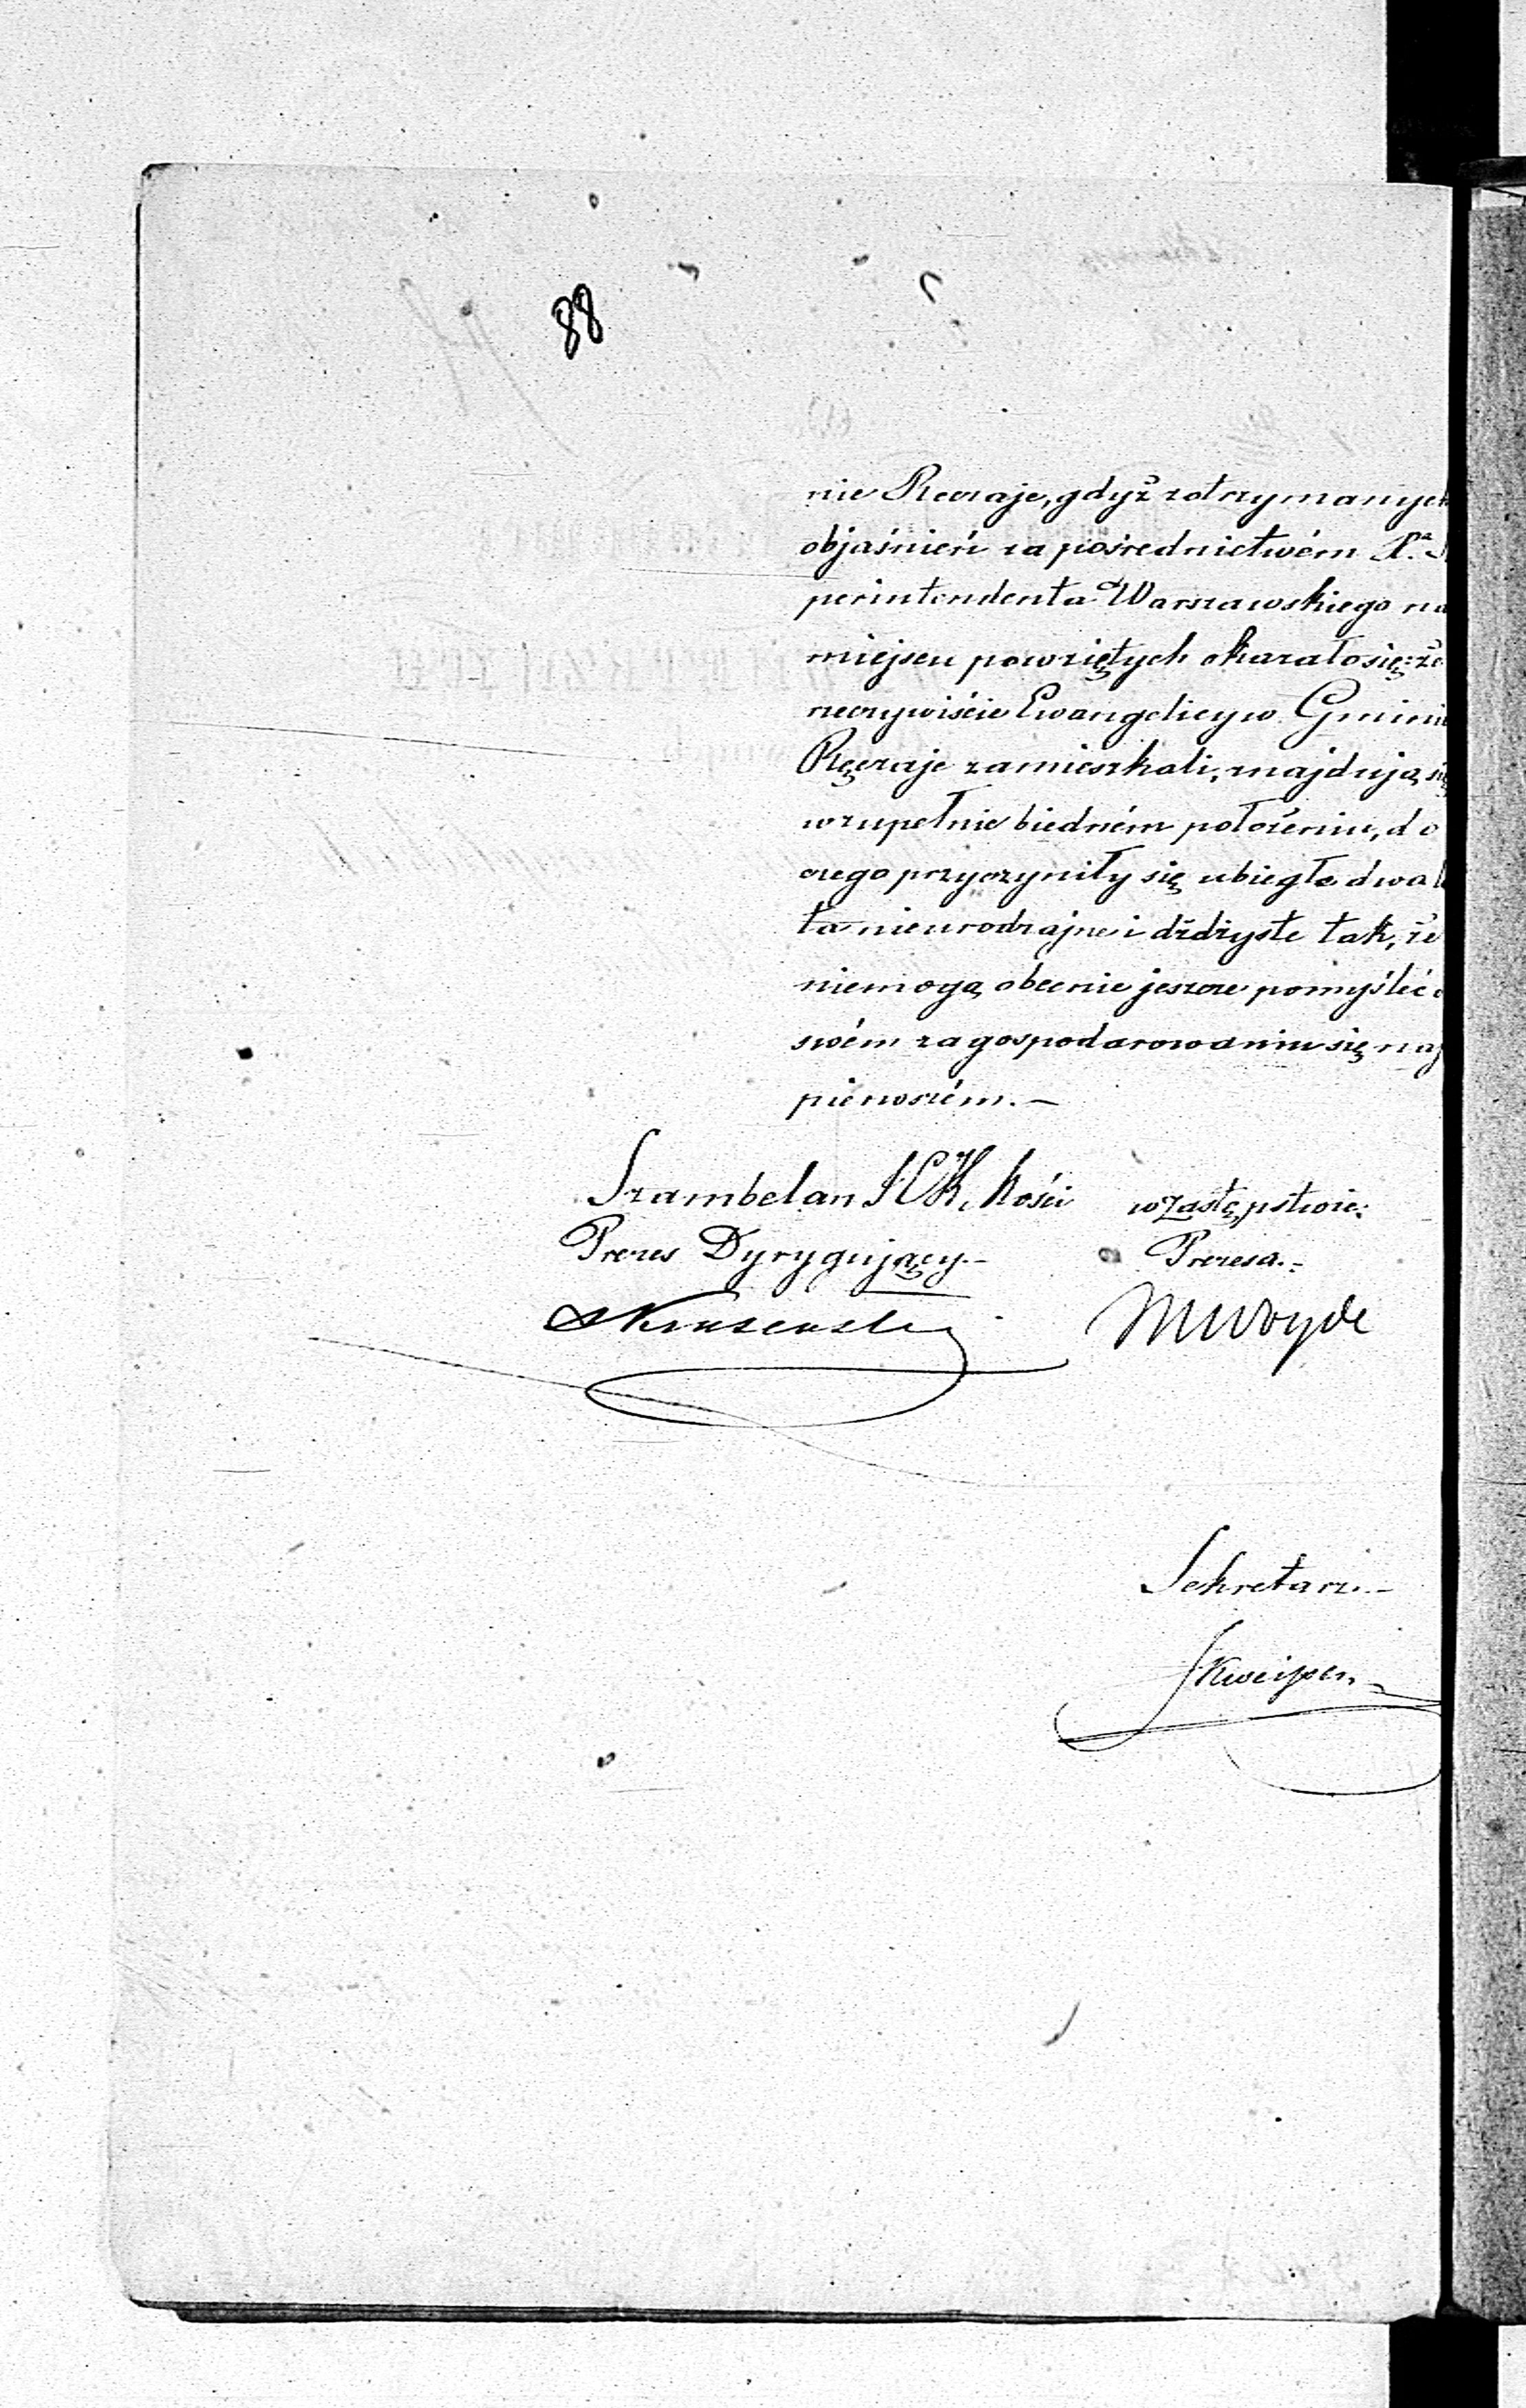 88
nie Reczaje, gdyż z otrzymanych
objaśnień za pośrednictwém X.a S
perintendenta Warszawskiego na
miejscu powziętych okazało się: że
rzeczywiście Ewangelicy w Gminie
Ręczaje zamieszkali, znajdują się
w zupełnie biedném położeniu, do
czego przyczyniły się ubiegłe dwa l
ta nieurodzajne i dżdżyste tak, że
niemogą obecnie jeszcze pomyśleć o
swém zagospodarowaniu się naj
pierwszém. —
Szambelan JCK. Mości w Zastępstwie:
Prezes Dyrygujący. — Prezesa. —
MWoyde
Sekretarz. —